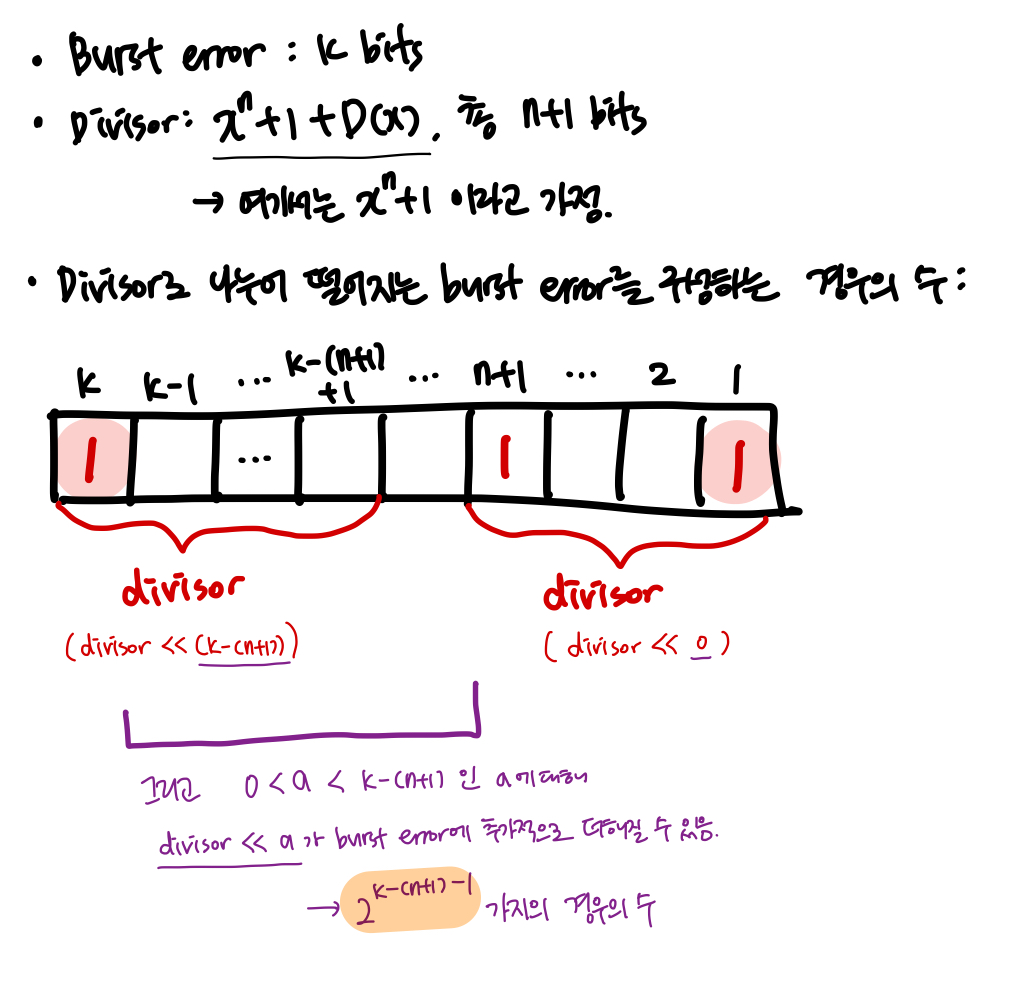 • Burst error : k bits
• Divisor: xⁿ+1+D(x), 총 n+1 bits
→ 여기서는 xⁿ+1 이라고 가정.
• Divisor로 나누어 떨어지는 burst error를 구성하는 경우의 수:
k k-1 ... k-(n+1)+1 ... n+1 ... 2 1
1 ... 1 1
divisor divisor
(divisor << (k-(n+1))) (divisor << 0)
그리고 0 < a < k-(n+1) 인 a에 대해
divisor << a가 burst error에 추가적으로 더해질 수 있음.
→ 2^(k-(n+1)-1) 가지의 경우의 수